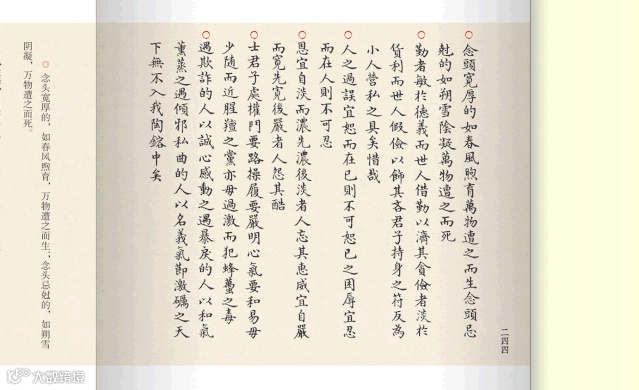 念頭寬厚的如春風煦育萬物遭之而生念頭忌
尅的如朔雪陰凝萬物遭之而死
勤者敏於德義而世人借勤以濟其貪儉者淡於
貨利而世人假儉以飾其吝君子持身之符反為
小人營私之具矣惜哉
人之過誤宜恕而在己則不可恕己之困辱宜忍
而在人則不可忍
恩宜自淡而濃先濃後淡者人忘其惠威宜自嚴
而寬先寬後嚴者人怨其酷
士君子處權門要路操履要嚴明心氣要和易毋
少隨而近腥羶之黨亦毋過激而犯蜂蠆之毒
遇欺詐的人以誠心感動之遇暴戾的人以和氣
薰蒸之遇傾邪私曲的人以名義氣節激礪之天
下無不入我陶鎔中矣
二四四
念头宽厚的，如春风煦育，万物遭之而生；念头忌尅的，如朔雪
阴凝，万物遭之而死。
大数跨境